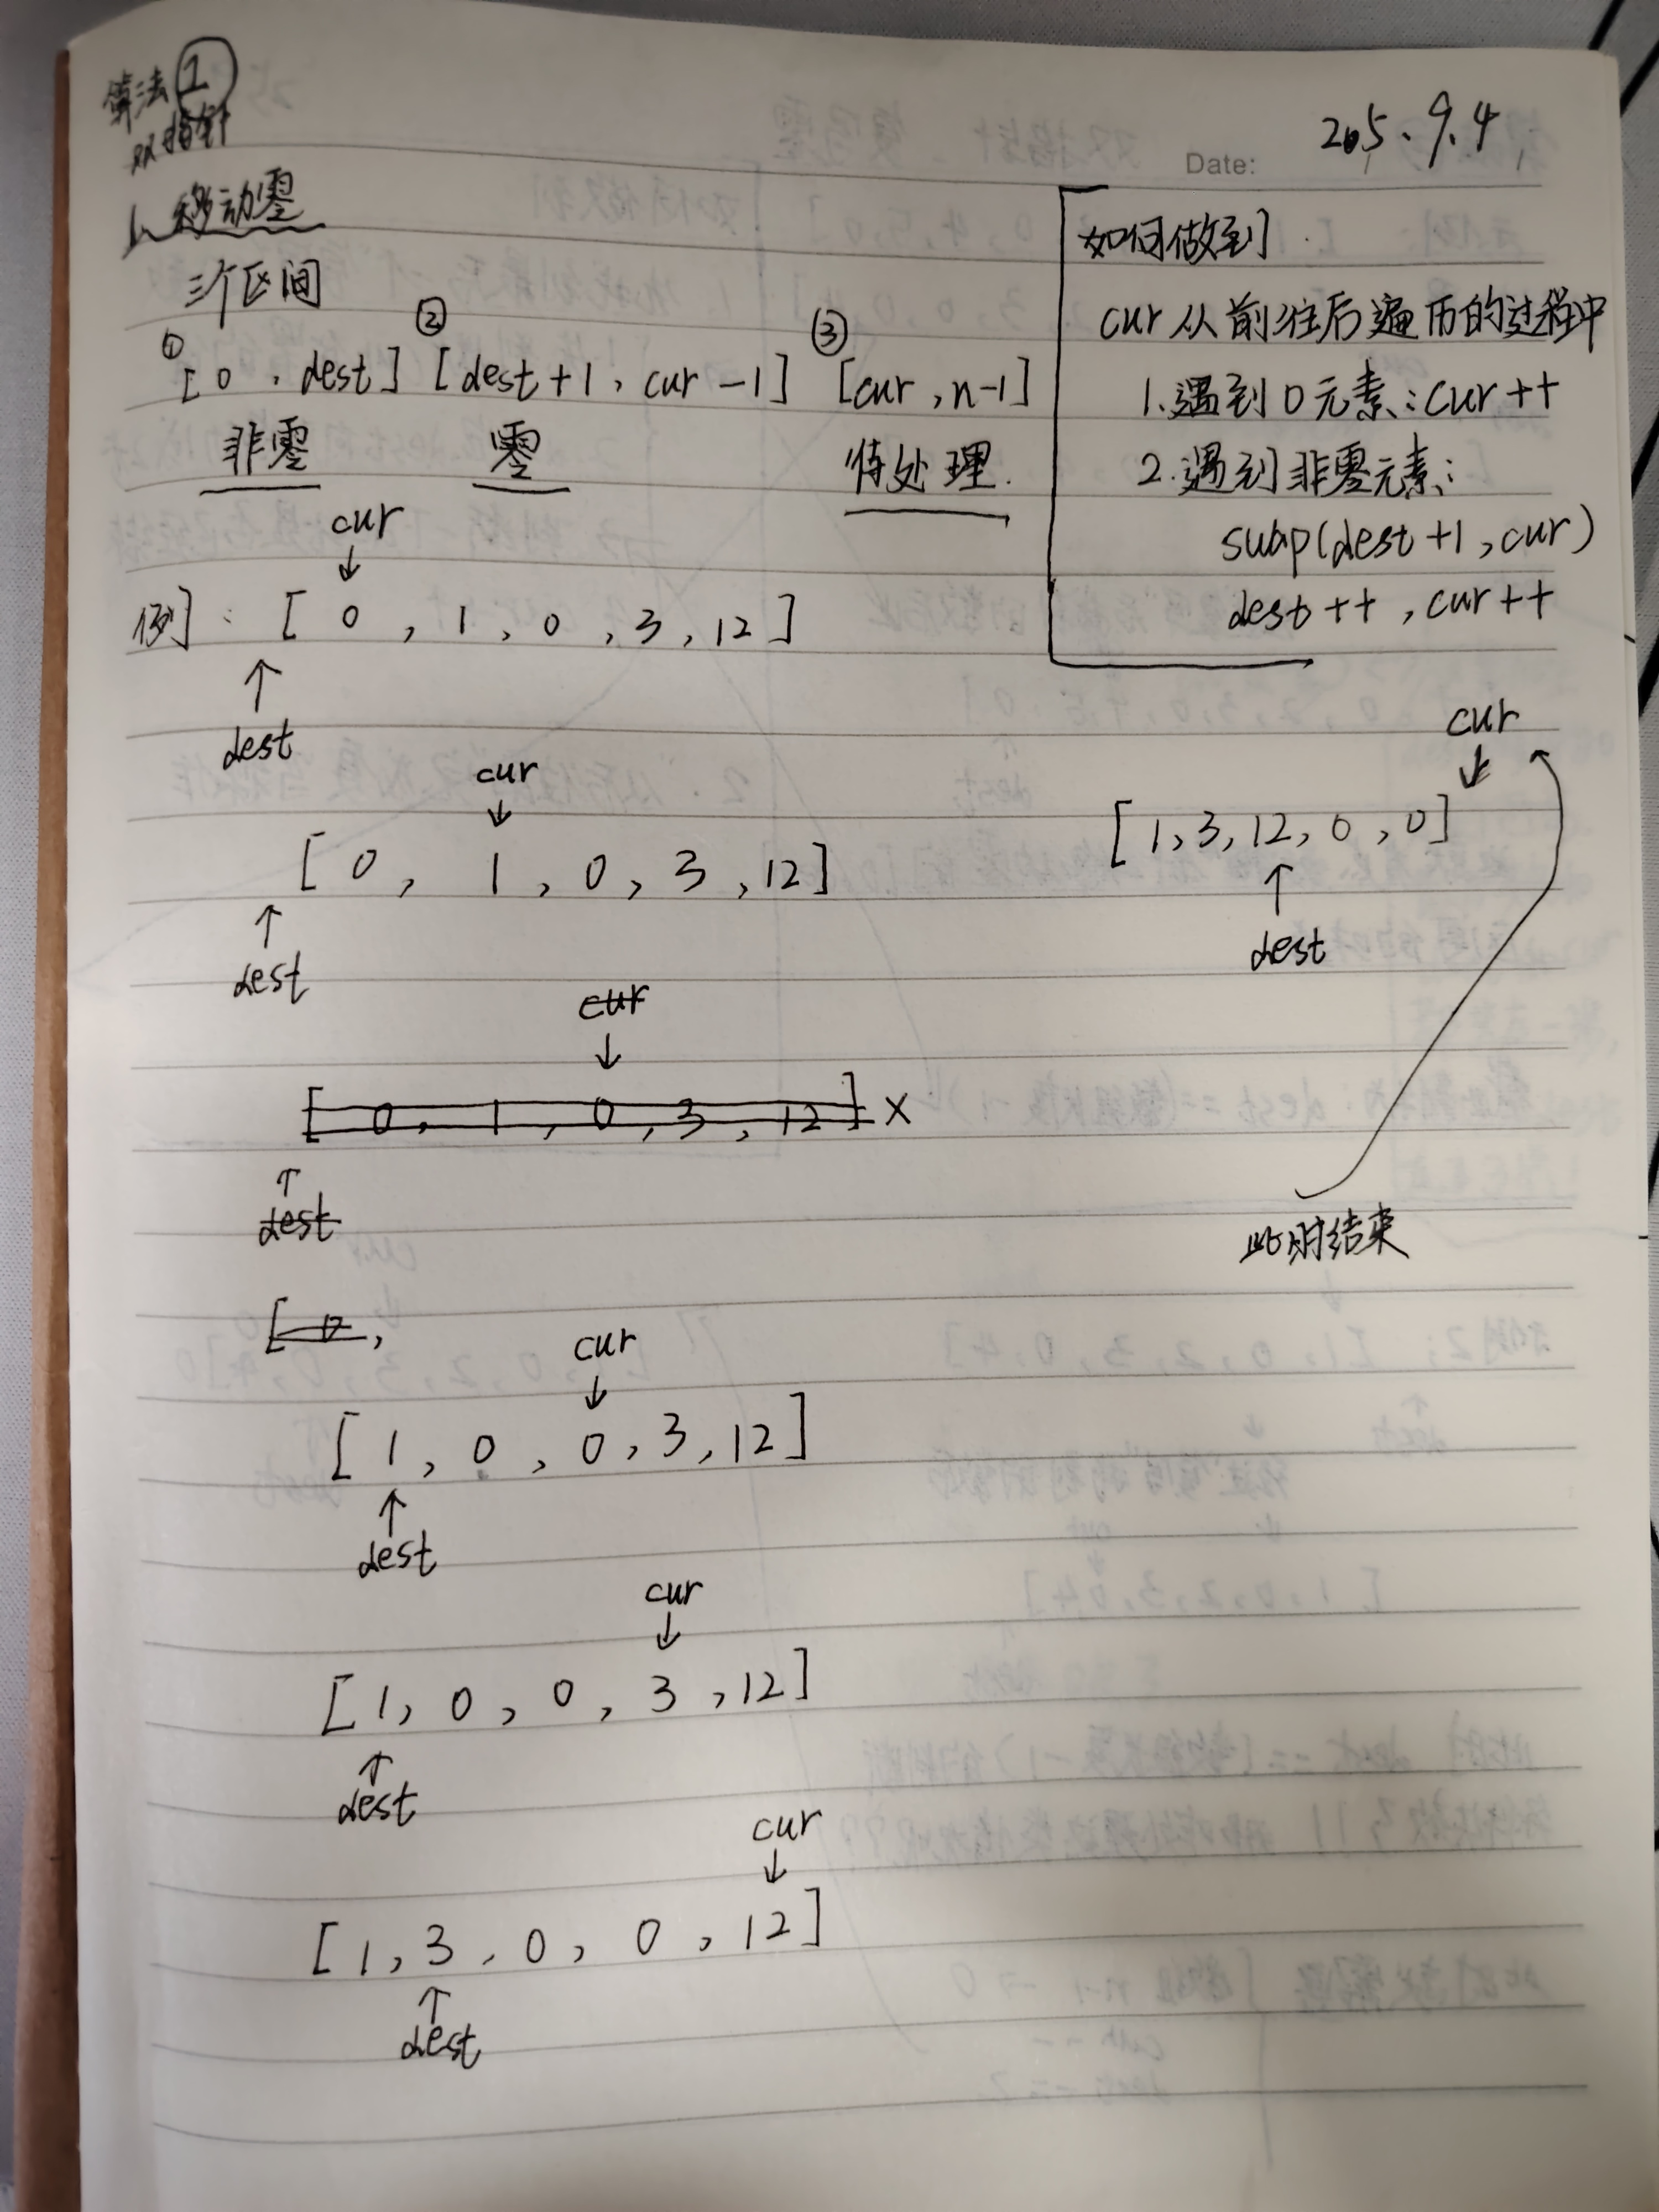 算法①
双指针
Date: 2025.9.4
1、移动零
三个区间
① ② ③
[0,dest] [dest+1,cur-1] [cur,n-1]
非零 零 待处理.
如何做到.
cur从前往后遍历的过程中
1.遇到0元素:cur++
2.遇到非零元素:
swap(dest+1,cur)
dest++,cur++
cur
↓
例: [0,1,0,3,12]
↑
dest
cur
↓
[0,1,0,3,12]
↑
dest
cur
↓
[0,1,0,3,12] ×
↑
dest
[0,
cur
↓
[1,0,0,3,12]
↑
dest
cur
↓
[1,0,0,3,12]
↑
dest
cur
↓
[1,3,0,0,12]
↑
dest
cur
↓
[1,3,12,0,0]
↑
dest
此时结束